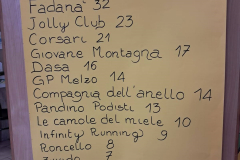 Fadana 32
Jolly Club 23
Corsari 21
Giovane Montagna 17
Dasa 16
GP Melzo 14
Compagnia dell'anello 14
Pandino Podisti 13
Le camole del miele 10
Infinity Running 9
Roncello 8
7